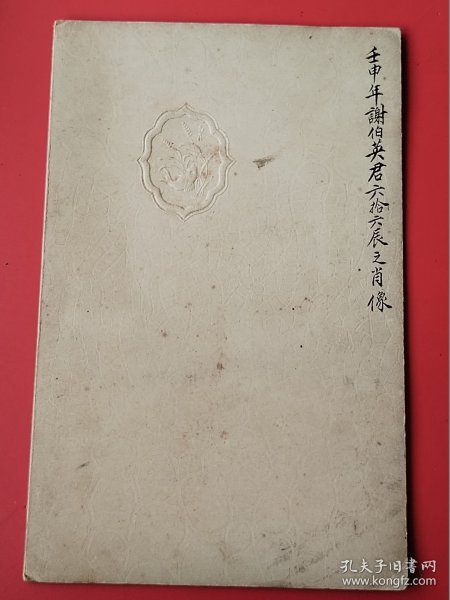 壬申年謝伯英君六拾六辰之肖像
孔夫子旧书网
www.kongfz.com